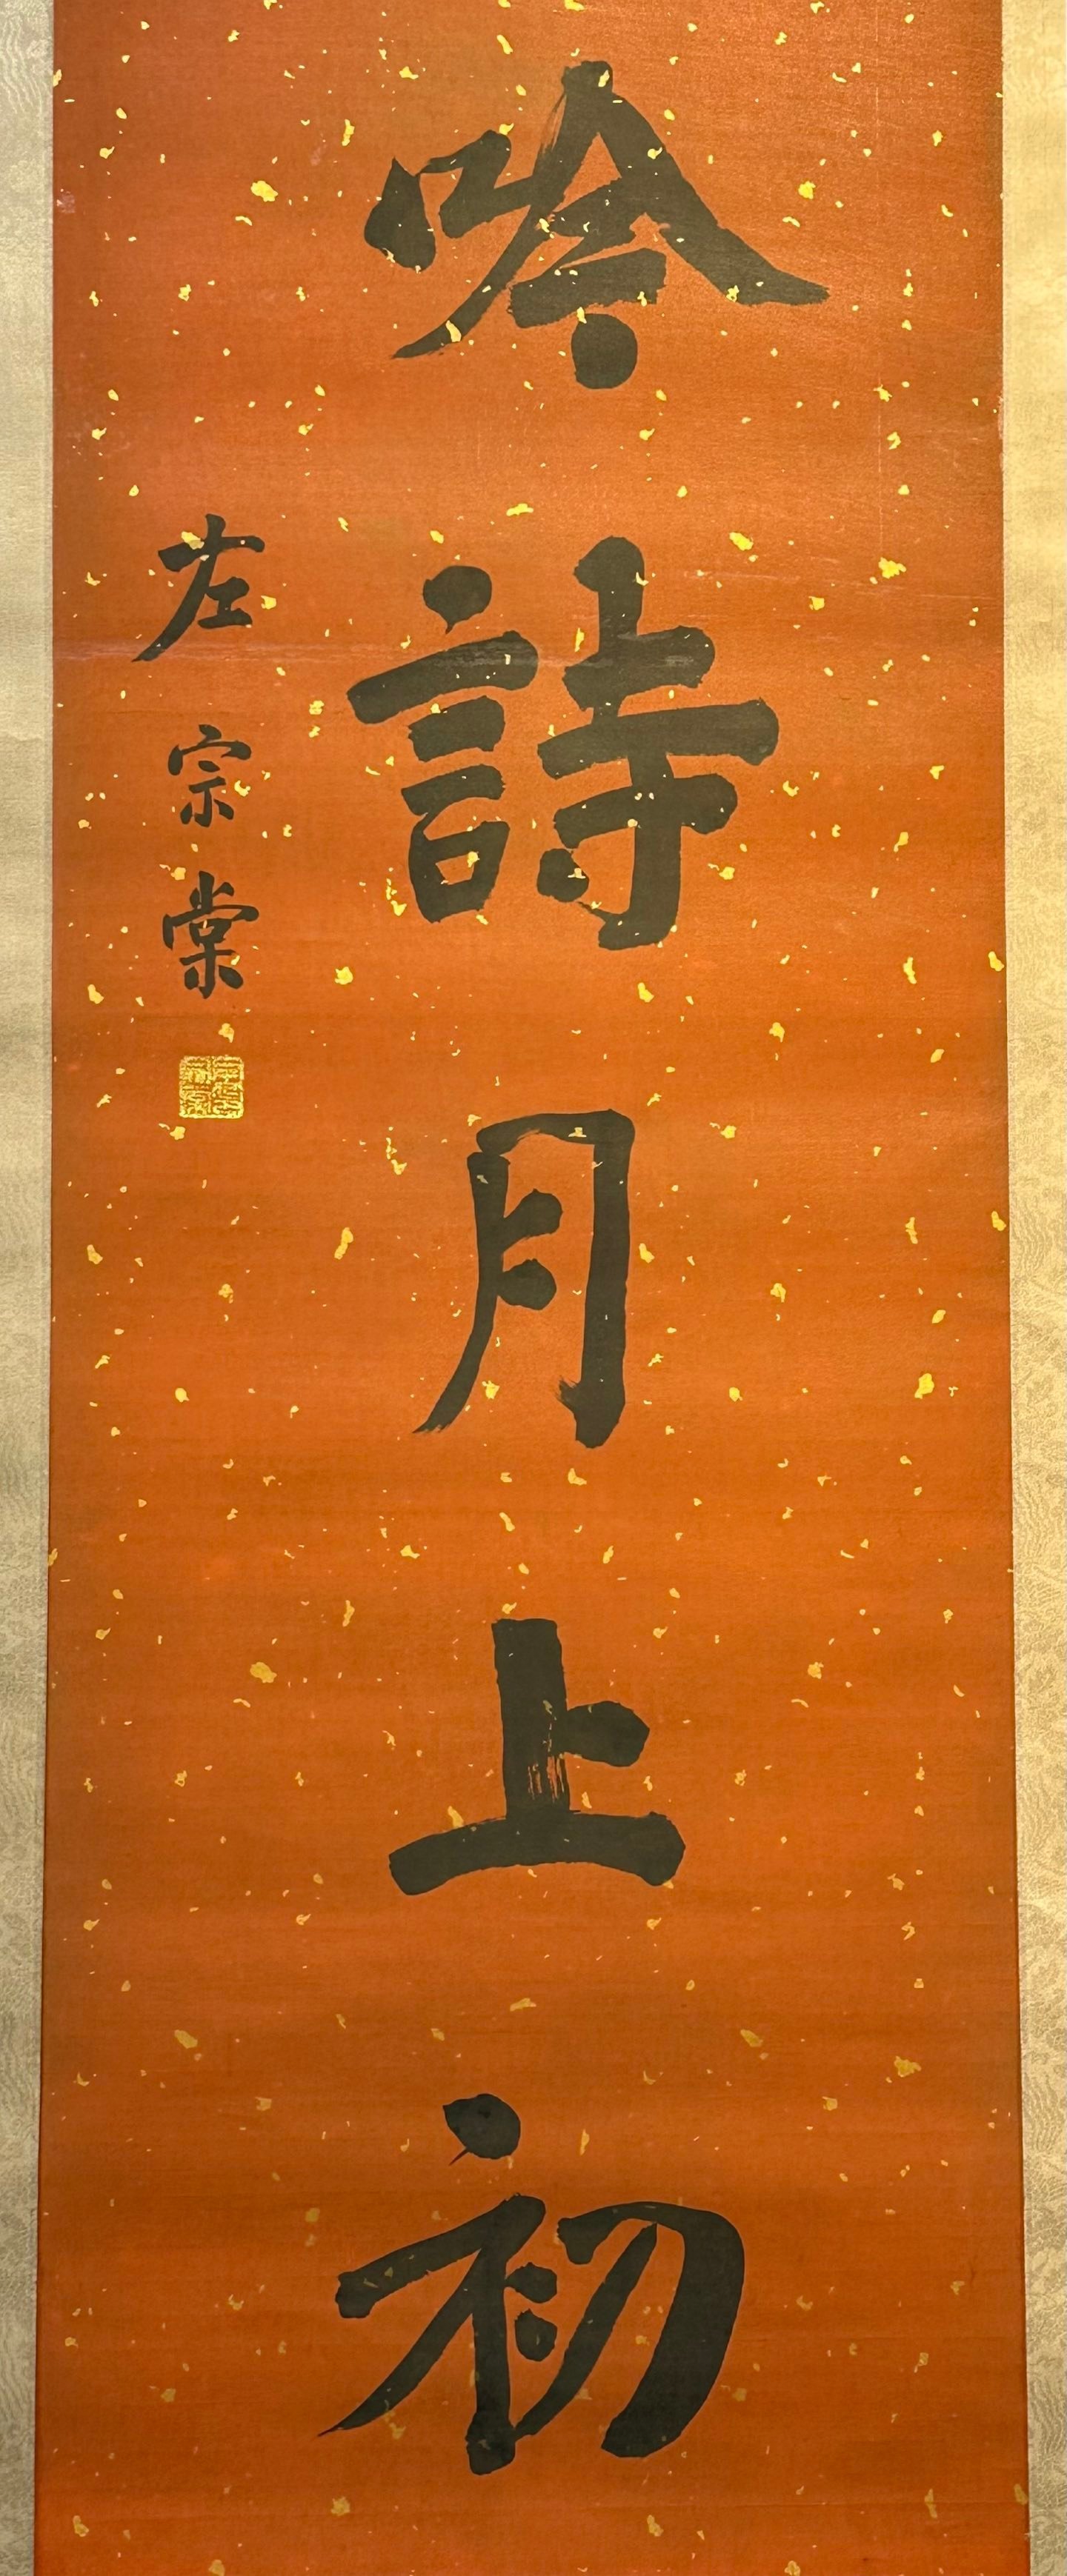 吟詩月上初
左宗棠